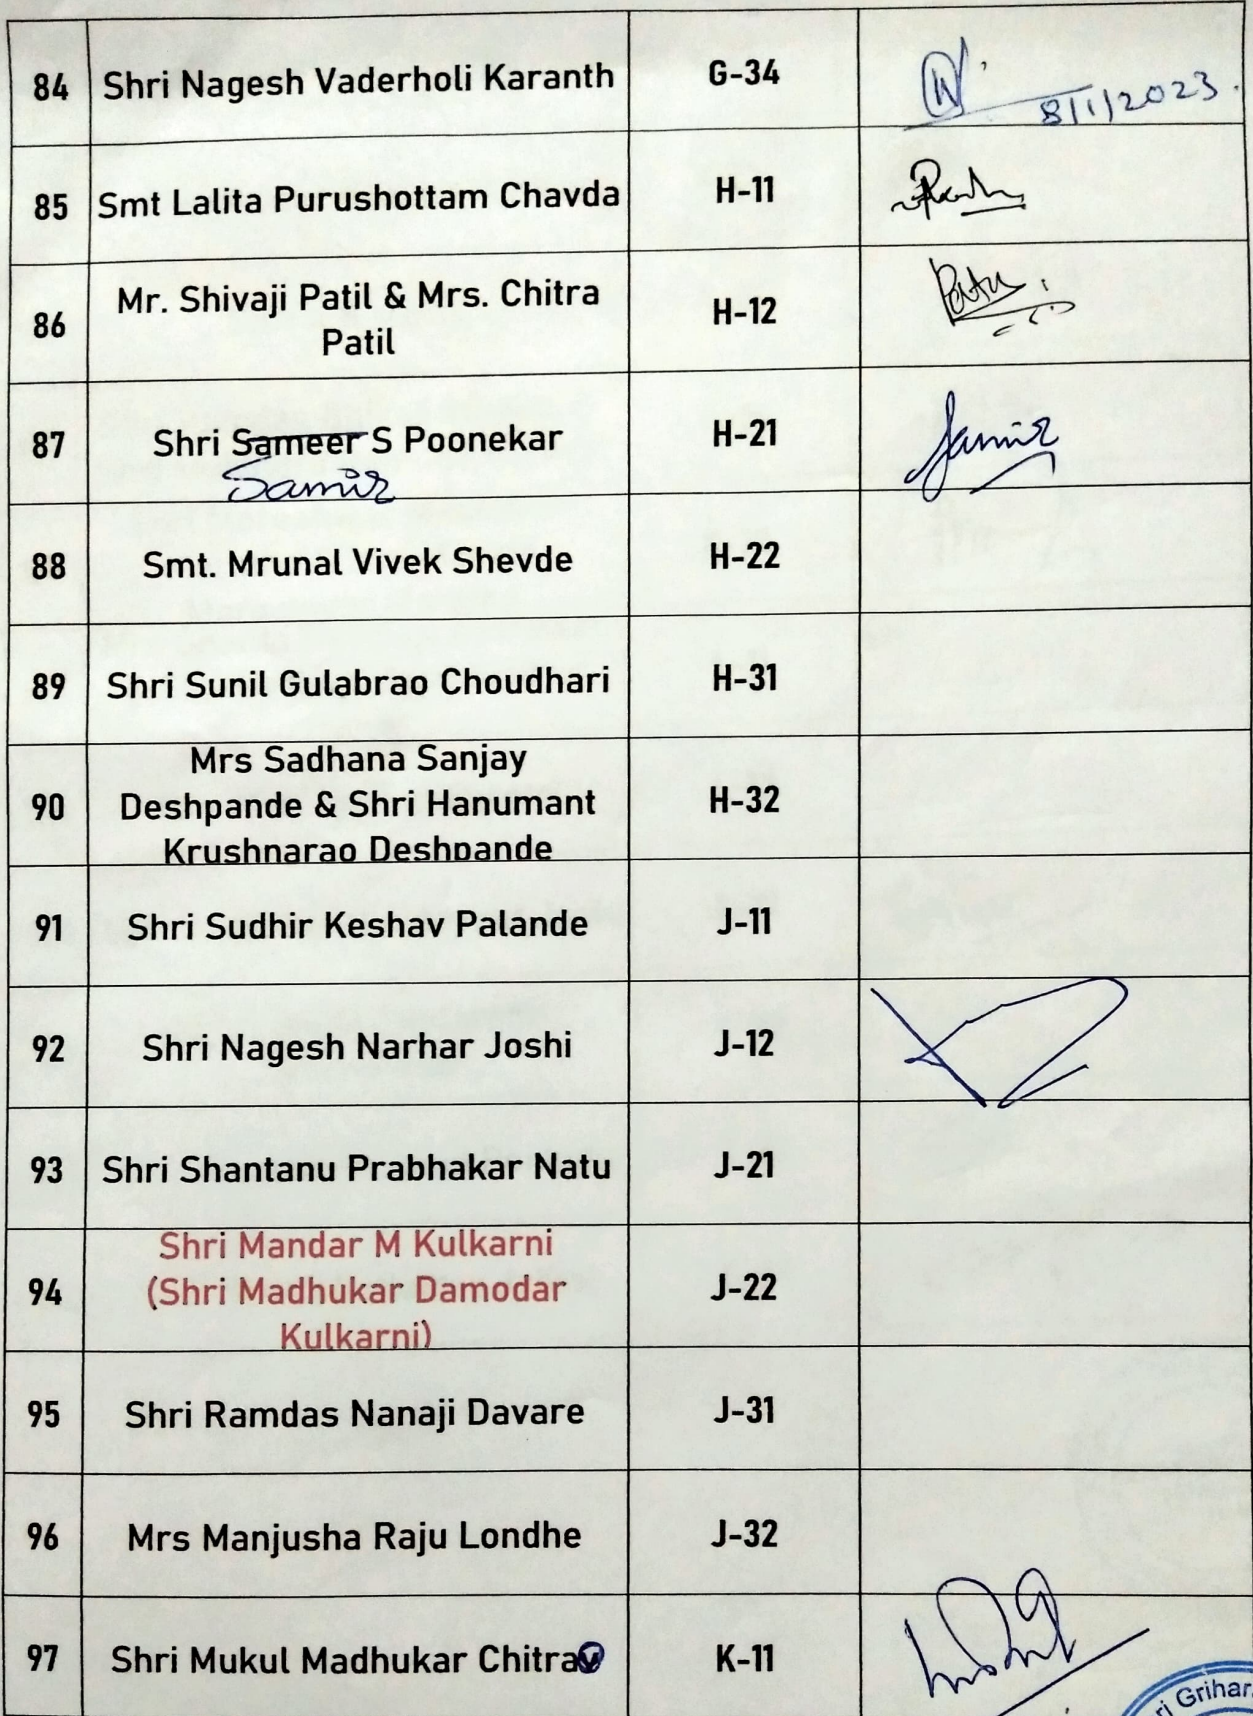 84 Shri Nagesh Vaderholi Karanth G-34 8/1/2023.
85 Smt Lalita Purushottam Chavda H-11
86 Mr. Shivaji Patil & Mrs. Chitra Patil H-12
87 Shri Sameer S Poonekar H-21 Samir
Samir
88 Smt. Mrunal Vivek Shevde H-22
89 Shri Sunil Gulabrao Choudhari H-31
Mrs Sadhana Sanjay
90 Deshpande & Shri Hanumant H-32
Krushnarao Deshpande
91 Shri Sudhir Keshav Palande J-11
92 Shri Nagesh Narhar Joshi J-12
93 Shri Shantanu Prabhakar Natu J-21
Shri Mandar M Kulkarni
94 (Shri Madhukar Damodar J-22
Kulkarni)
95 Shri Ramdas Nanaji Davare J-31
96 Mrs Manjusha Raju Londhe J-32
97 Shri Mukul Madhukar Chitrav K-11